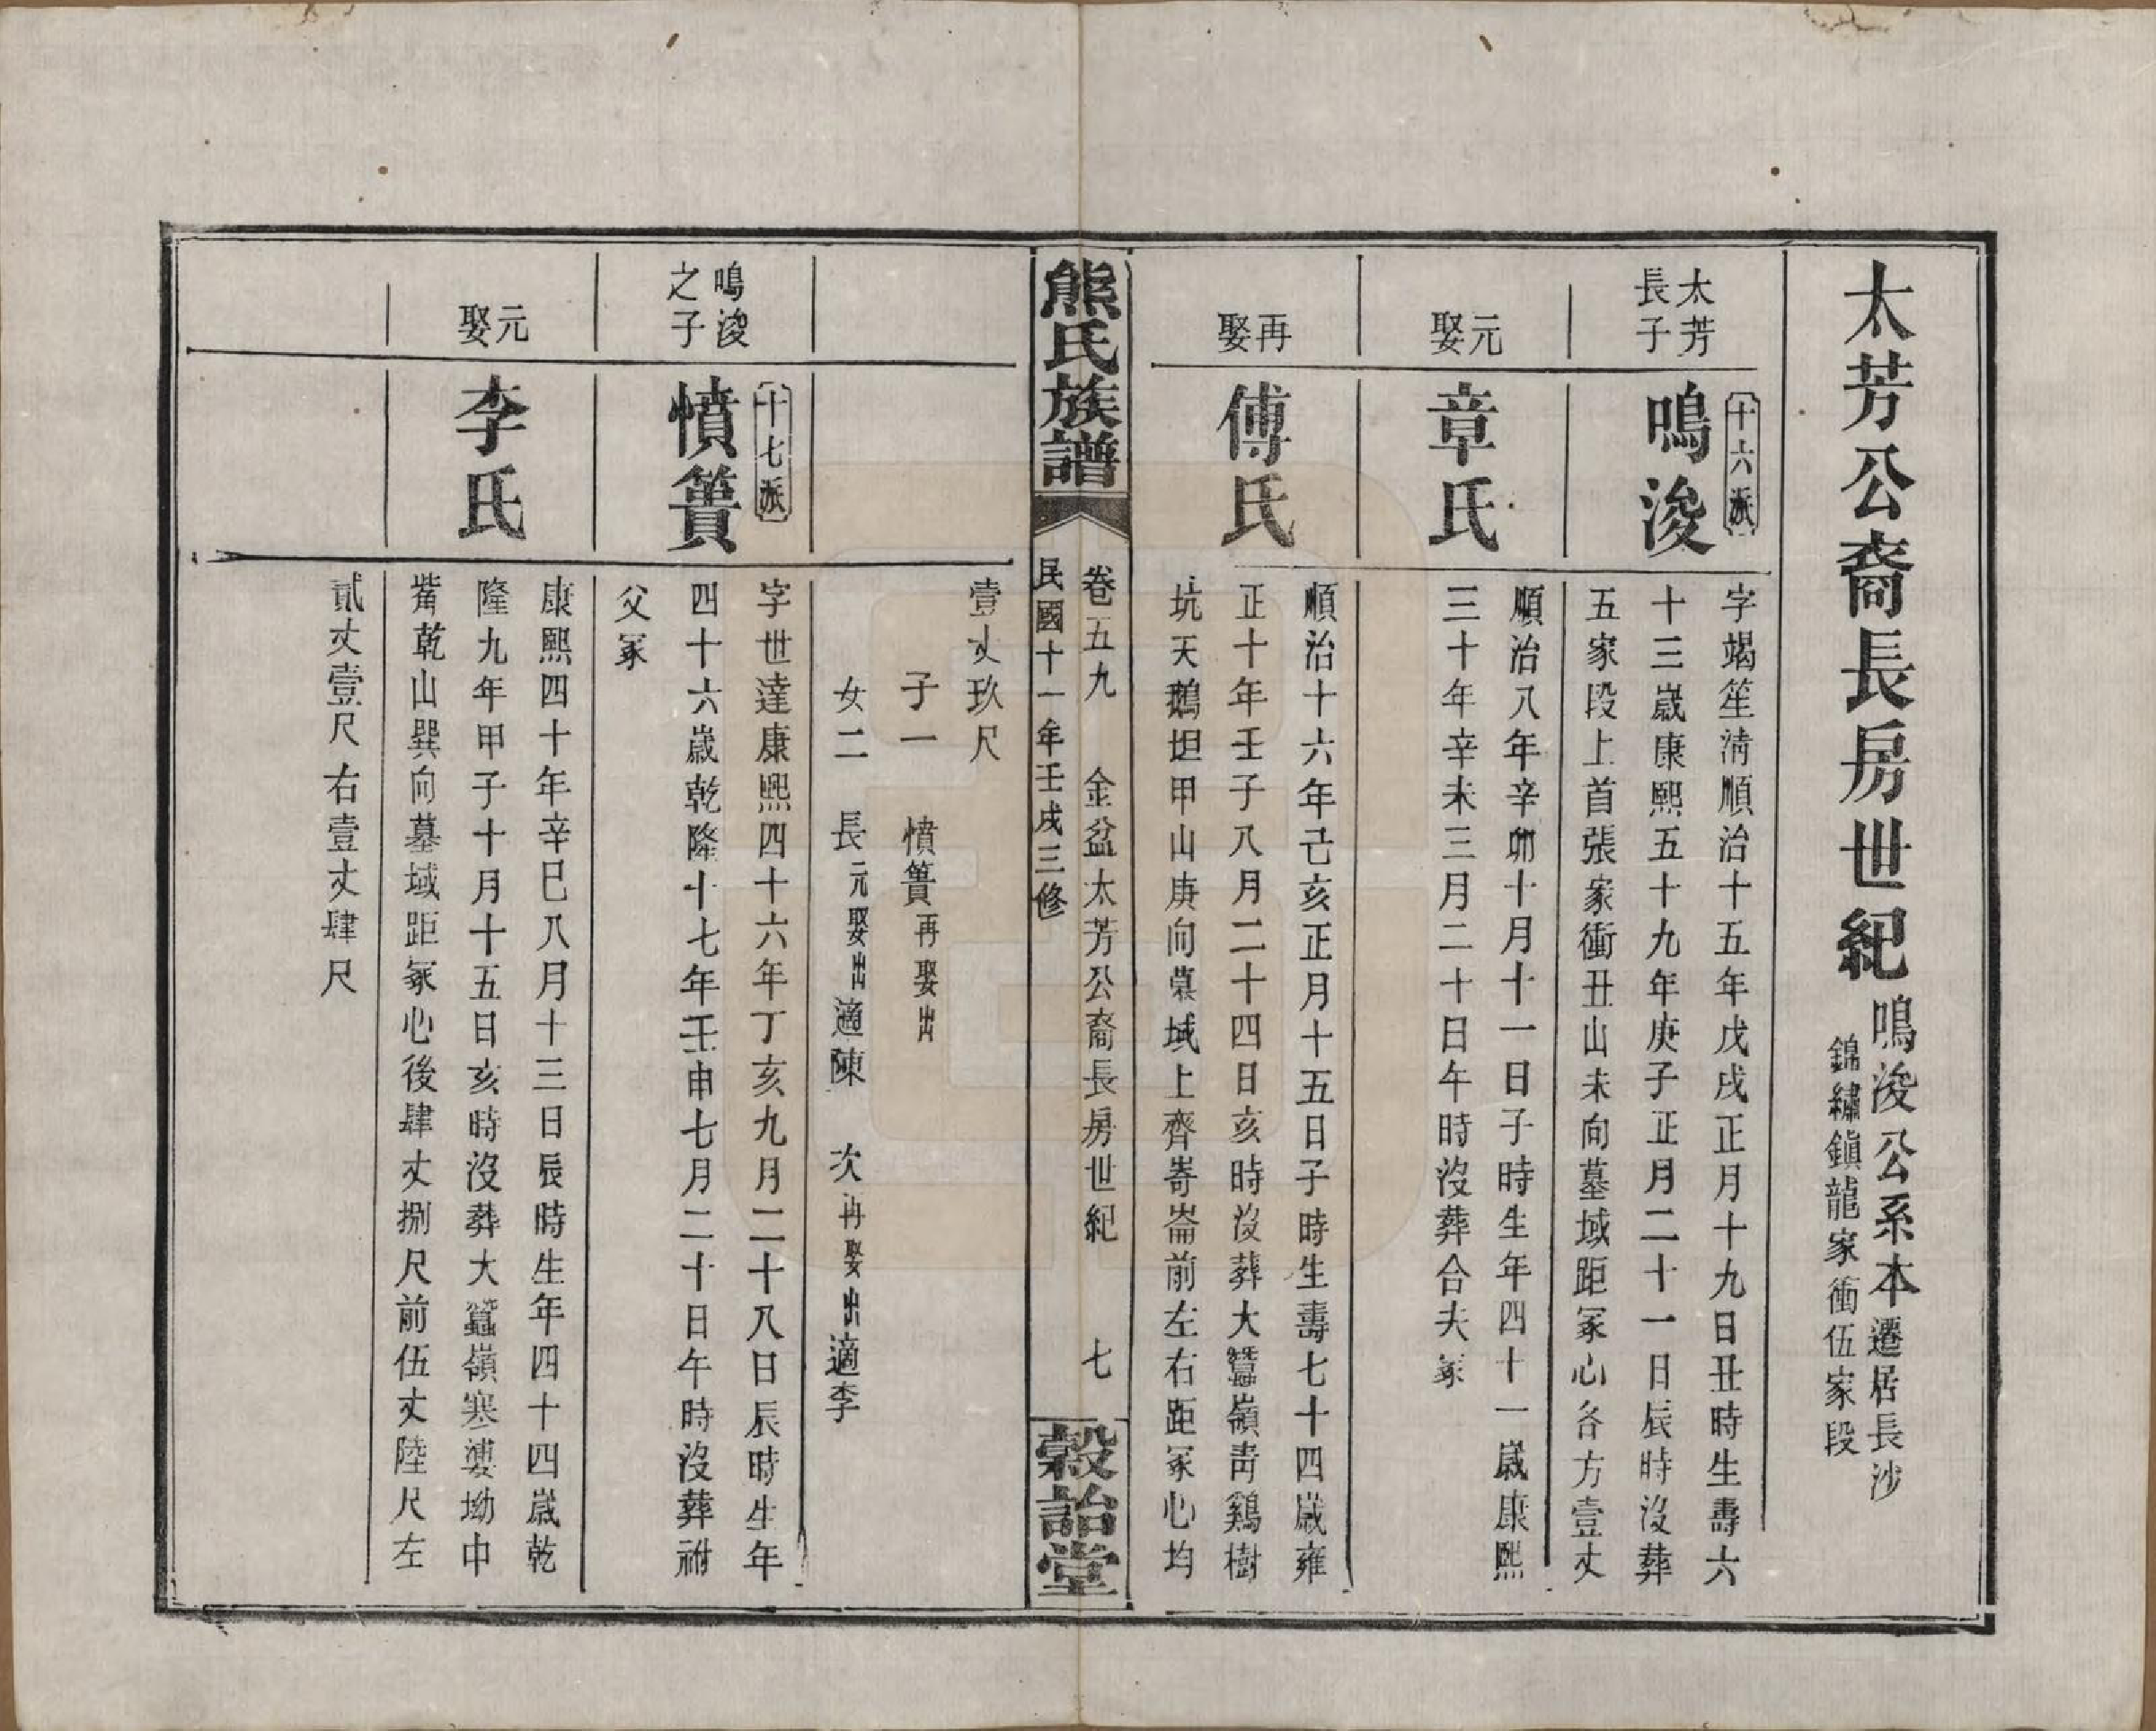 太芳公裔長房世紀
鳴浚公系本遷居長沙
錦繡鎮龍家衝伍家段
太芳
長子
十六派
鳴浚
字竭笙淸順治十五年戊戌正月十九日丑時生壽六
十三歲康熙五十九年庚子正月二十一日辰時沒葬
五家段上首張家衝丑山未向墓域距冢心各方壹丈
元
娶
章氏
順治八年辛卯十月十一日子時生年四十一歲康熙
三十年辛未三月二十日午時沒葬合夫冢
再
娶
傅氏
順治十六年己亥正月十五日子時生壽七十四歲雍
正十年壬子八月二十四日亥時沒葬大蠶嶺靑鷄樹
坑天鵝坦甲山庚向墓域上齊嵜崙前左右距冢心均
熊氏族譜
卷五九　金盆太芳公裔長房世紀　七
民國十一年壬戌三修
穀詒堂
壹丈玖尺
子一　憤簣再娶出
女二　長元娶出適陳　次再娶出適李
鳴浚
之子
十七派
憤簣
字世達康熙四十六年丁亥九月二十八日辰時生年
四十六歲乾隆十七年壬申七月二十日午時沒葬祔
父冢
元
娶
李氏
康熙四十年辛巳八月十三日辰時生年四十四歲乾
隆九年甲子十月十五日亥時沒葬大蠶嶺寒婆坳中
嘴乾山巽向墓域距冢心後肆丈捌尺前伍丈陸尺左
貳丈壹尺右壹丈肆尺